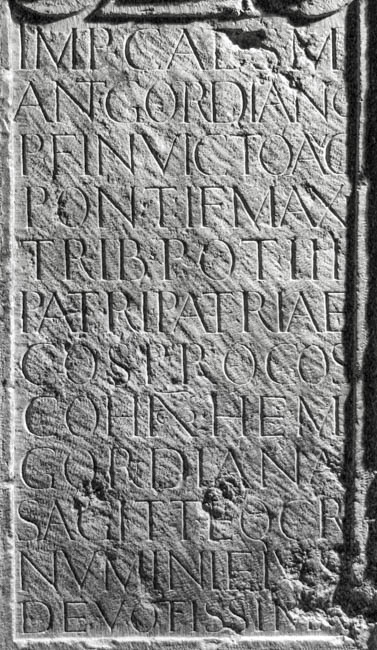 IMP·CAES M
ANT·GORDIANO
P F INVICTO AG
PONTIF MAX
TRIB·POT·III
PATRI PATRIAE
COS PROCOS
COH I HEM
GORDIANA
SAGITT
NVMINI
DEVOTISSIMA